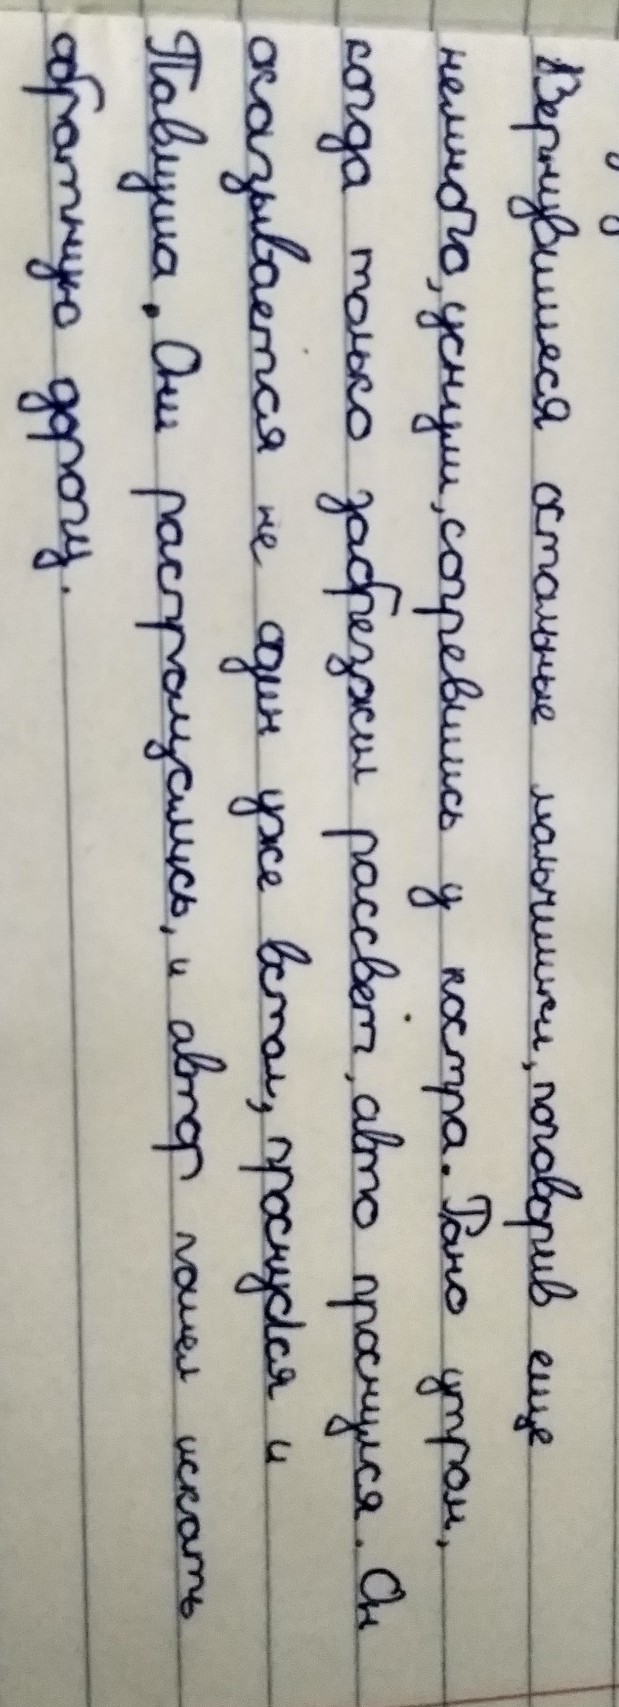 Вернувшиеся остальные мальчишки, поговорив еще
немного, уснули, согревшись у костра. Рано утром,
когда только забрезжил рассвет, авто проснулся. Он
оказывается не один уже встал, проснулся и
Павлуша. Они распрощались, и автор пошел искать
обратную дорогу.